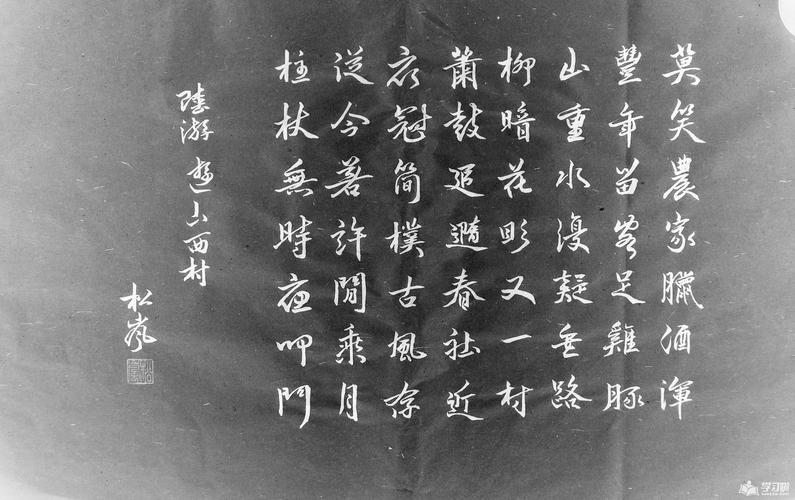 莫笑農家臘酒渾
豐年留客足雞豚
山重水複疑無路
柳暗花明又一村
蕭鼓追隨春社近
衣冠简樸古風存
從今若許閒乘月
柱杖無時夜叩門
陸游 遊山西村
松嵐
学习啦